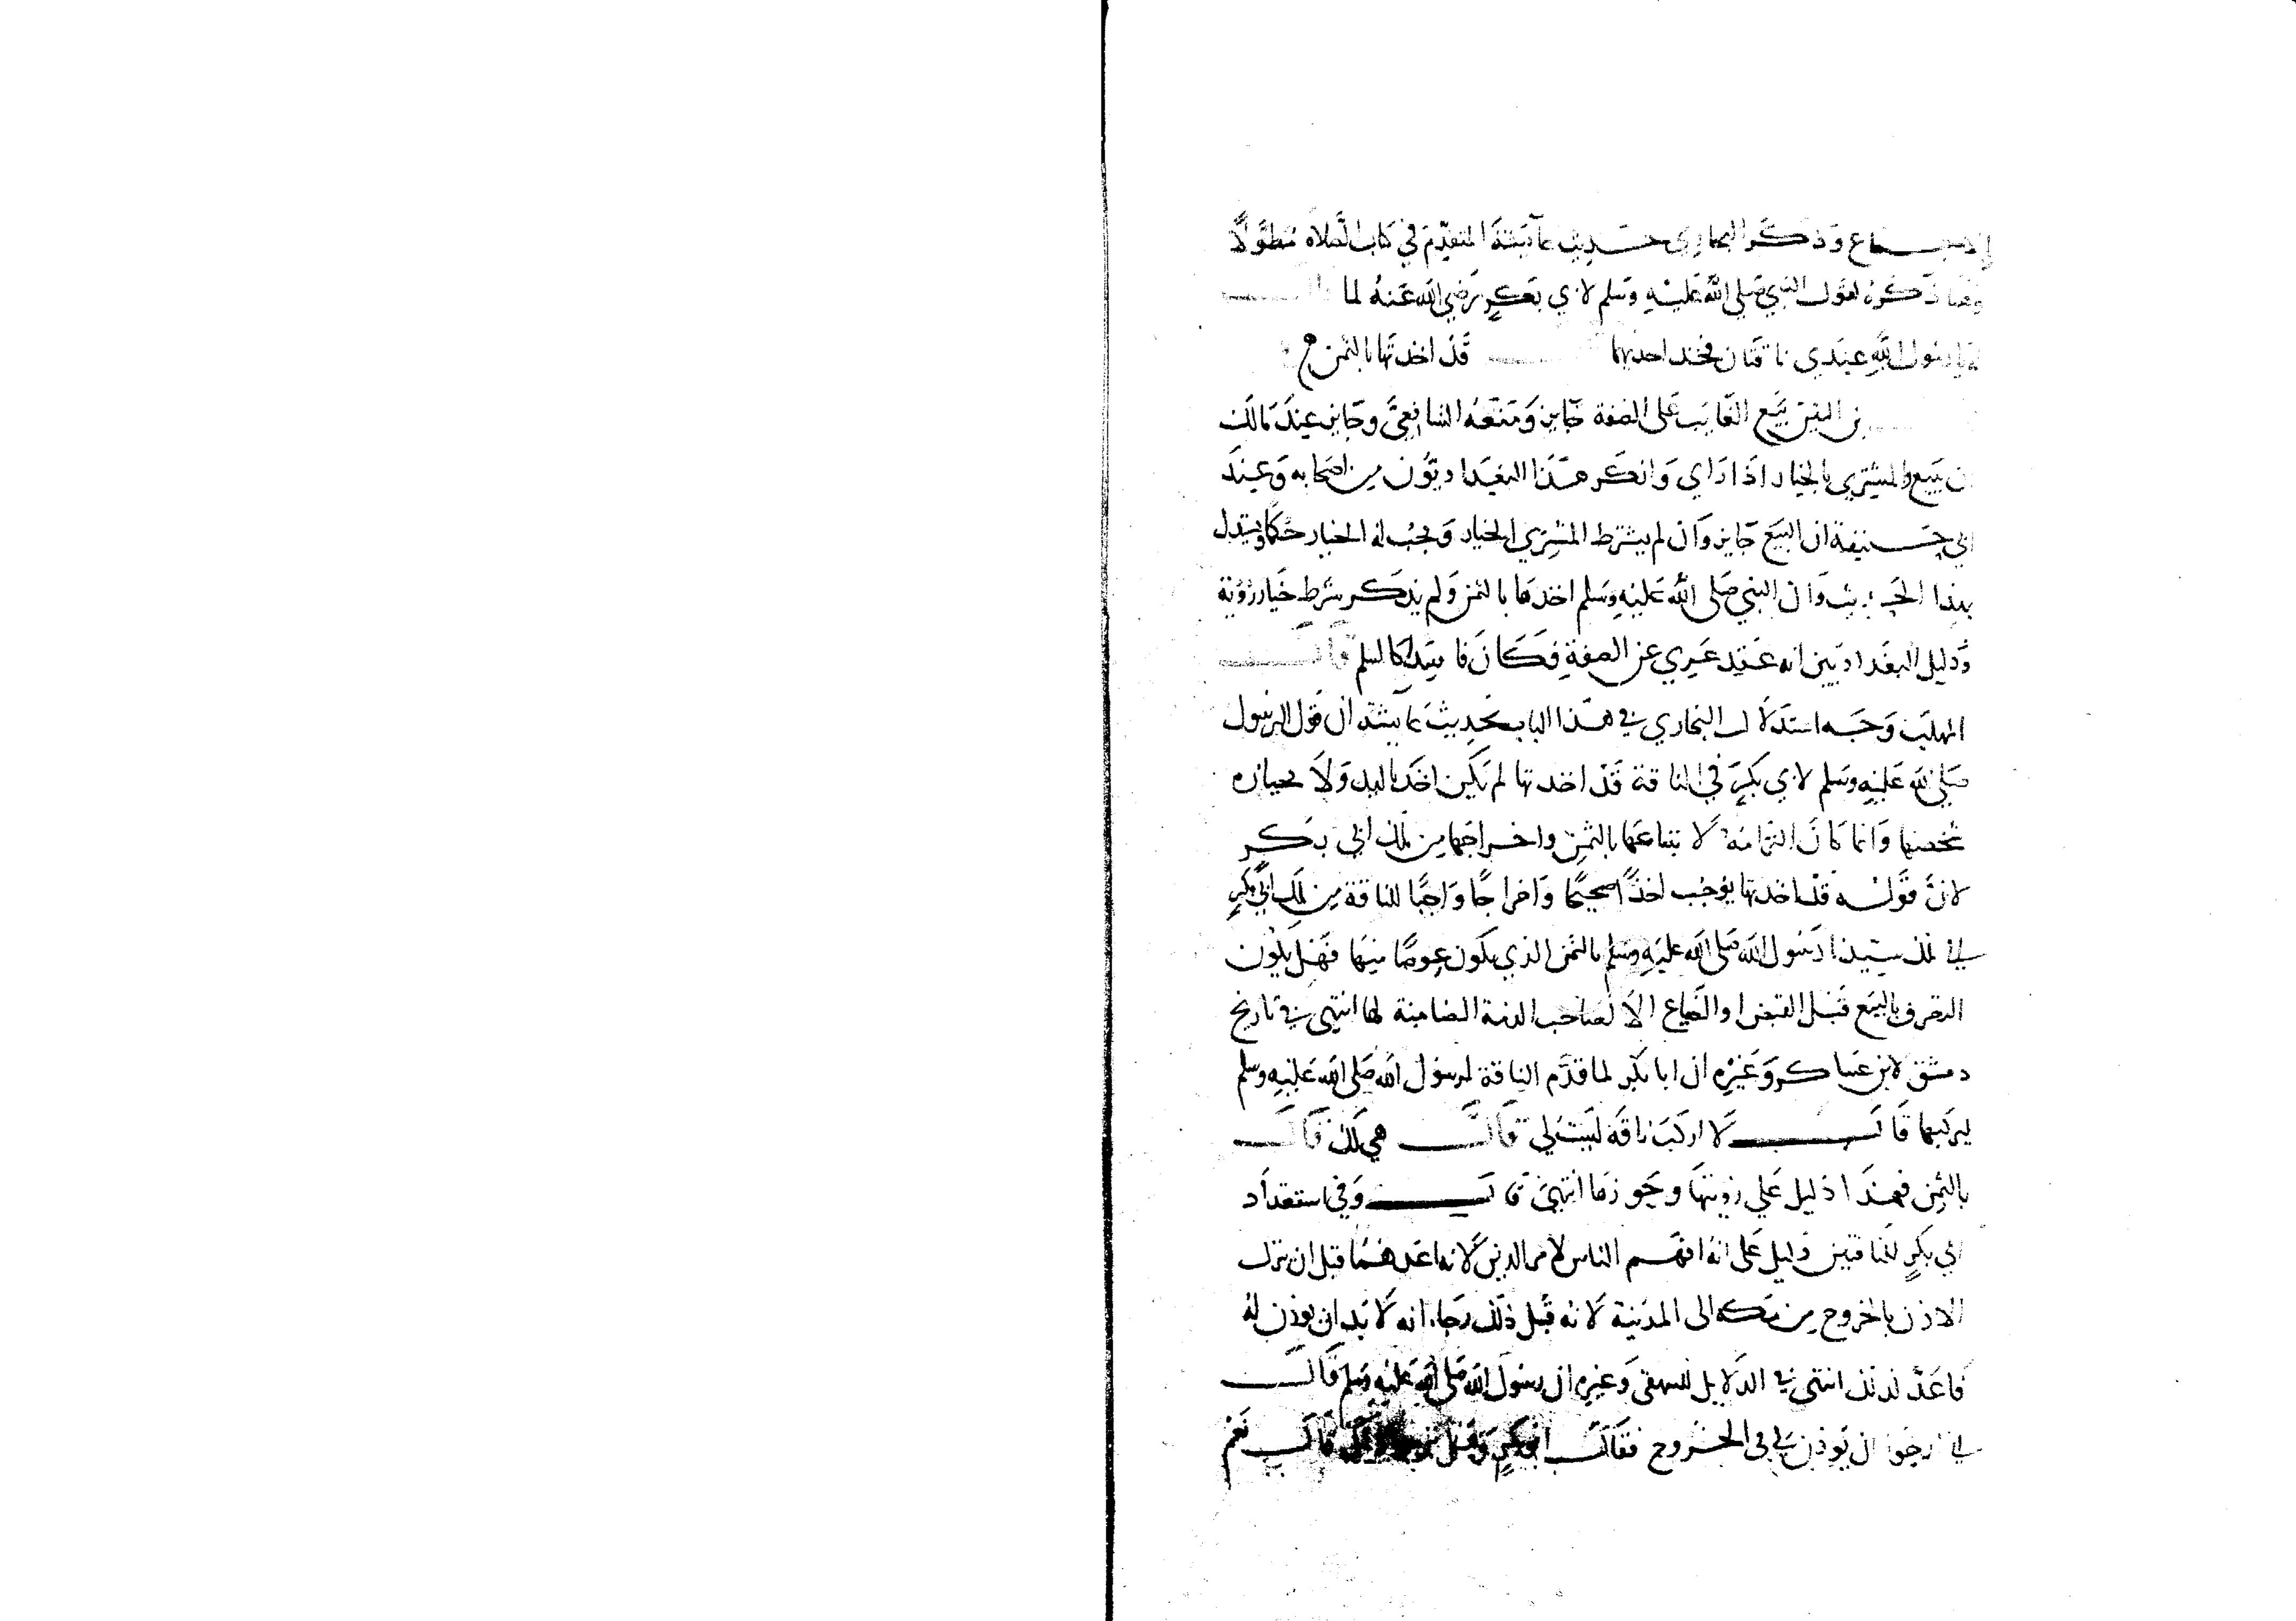 وذكر البخاري حديث عائشة المتقدم في كتاب الصلاة مطولا
ذكره لقول النبي صلى الله عليه وسلم لابي بكر رضي الله عنه لما
رسول الله عندي ناقتان فخذ احديهما قد اخذتها بالثمن
بيع الغايب على الصفة جايز ومنعه الشافعي وجايز عند مالك
ان بيع والمشتري بالخيار اذا راي وانكر هذا البغداديون من اصحابه وعند
ابي حنيفة ان البيع جايز وان لم يشترط المشتري الخيار ويجب له الخيار حكما ويستدل
بهذا الحديث وان النبي صلى الله عليه وسلم اخذها بالثمن ولم يذكر شرط خيار رؤية
ودليل البغداديين انه عقد عري عن الصفة فكان فاسدا كالسلم قال
المهلب وجه استدلال البخاري في هذا الباب بحديث عايشة ان قول الرسول
صلى الله عليه وسلم لابي بكر في الناقة قد اخذتها لم يكن اخذا باليد ولا بحيازه
شخصها وانما كان التزامه لابتياعها بالثمن واخراجها من ملك ابي بكر
لان قوله قد اخذتها يوجب اخذا صحيحا واخراجا واجبا للناقة من ملك ابي بكر
الي ملك سيدنا رسول الله صلى الله عليه وسلم بالثمن الذي يكون عوضا منها فهل يكون
التصرف بالبيع قبل القبض او الضياع الا لصاحب الذمة الضامنة لها انتهى في تاريخ
دمشق لابن عساكر وغيره ان ابا بكر لما قدم الناقة لرسول الله صلى الله عليه وسلم
ليركبها قال لا اركب ناقة ليست لي قال هي لك قال
بالثمن فهذا دليل على رؤيتها وحوزها انتهى قال وفي استعداد
ابي بكر للناقتين دليل على انه افهم الناس لامر الدين لانه اعدهما قبل ان نزل
الاذن بالخروج من مكه الى المدينة لانه قبل ذلك رجاء انه لا بد ان يوذن له
فاعد لذلك انتهى في الدلايل للبيهقي وغيره ان رسول الله صلى الله عليه وسلم قال
ارجو ان يوذن لي في الخروج فقال ابو بكر قال نعم